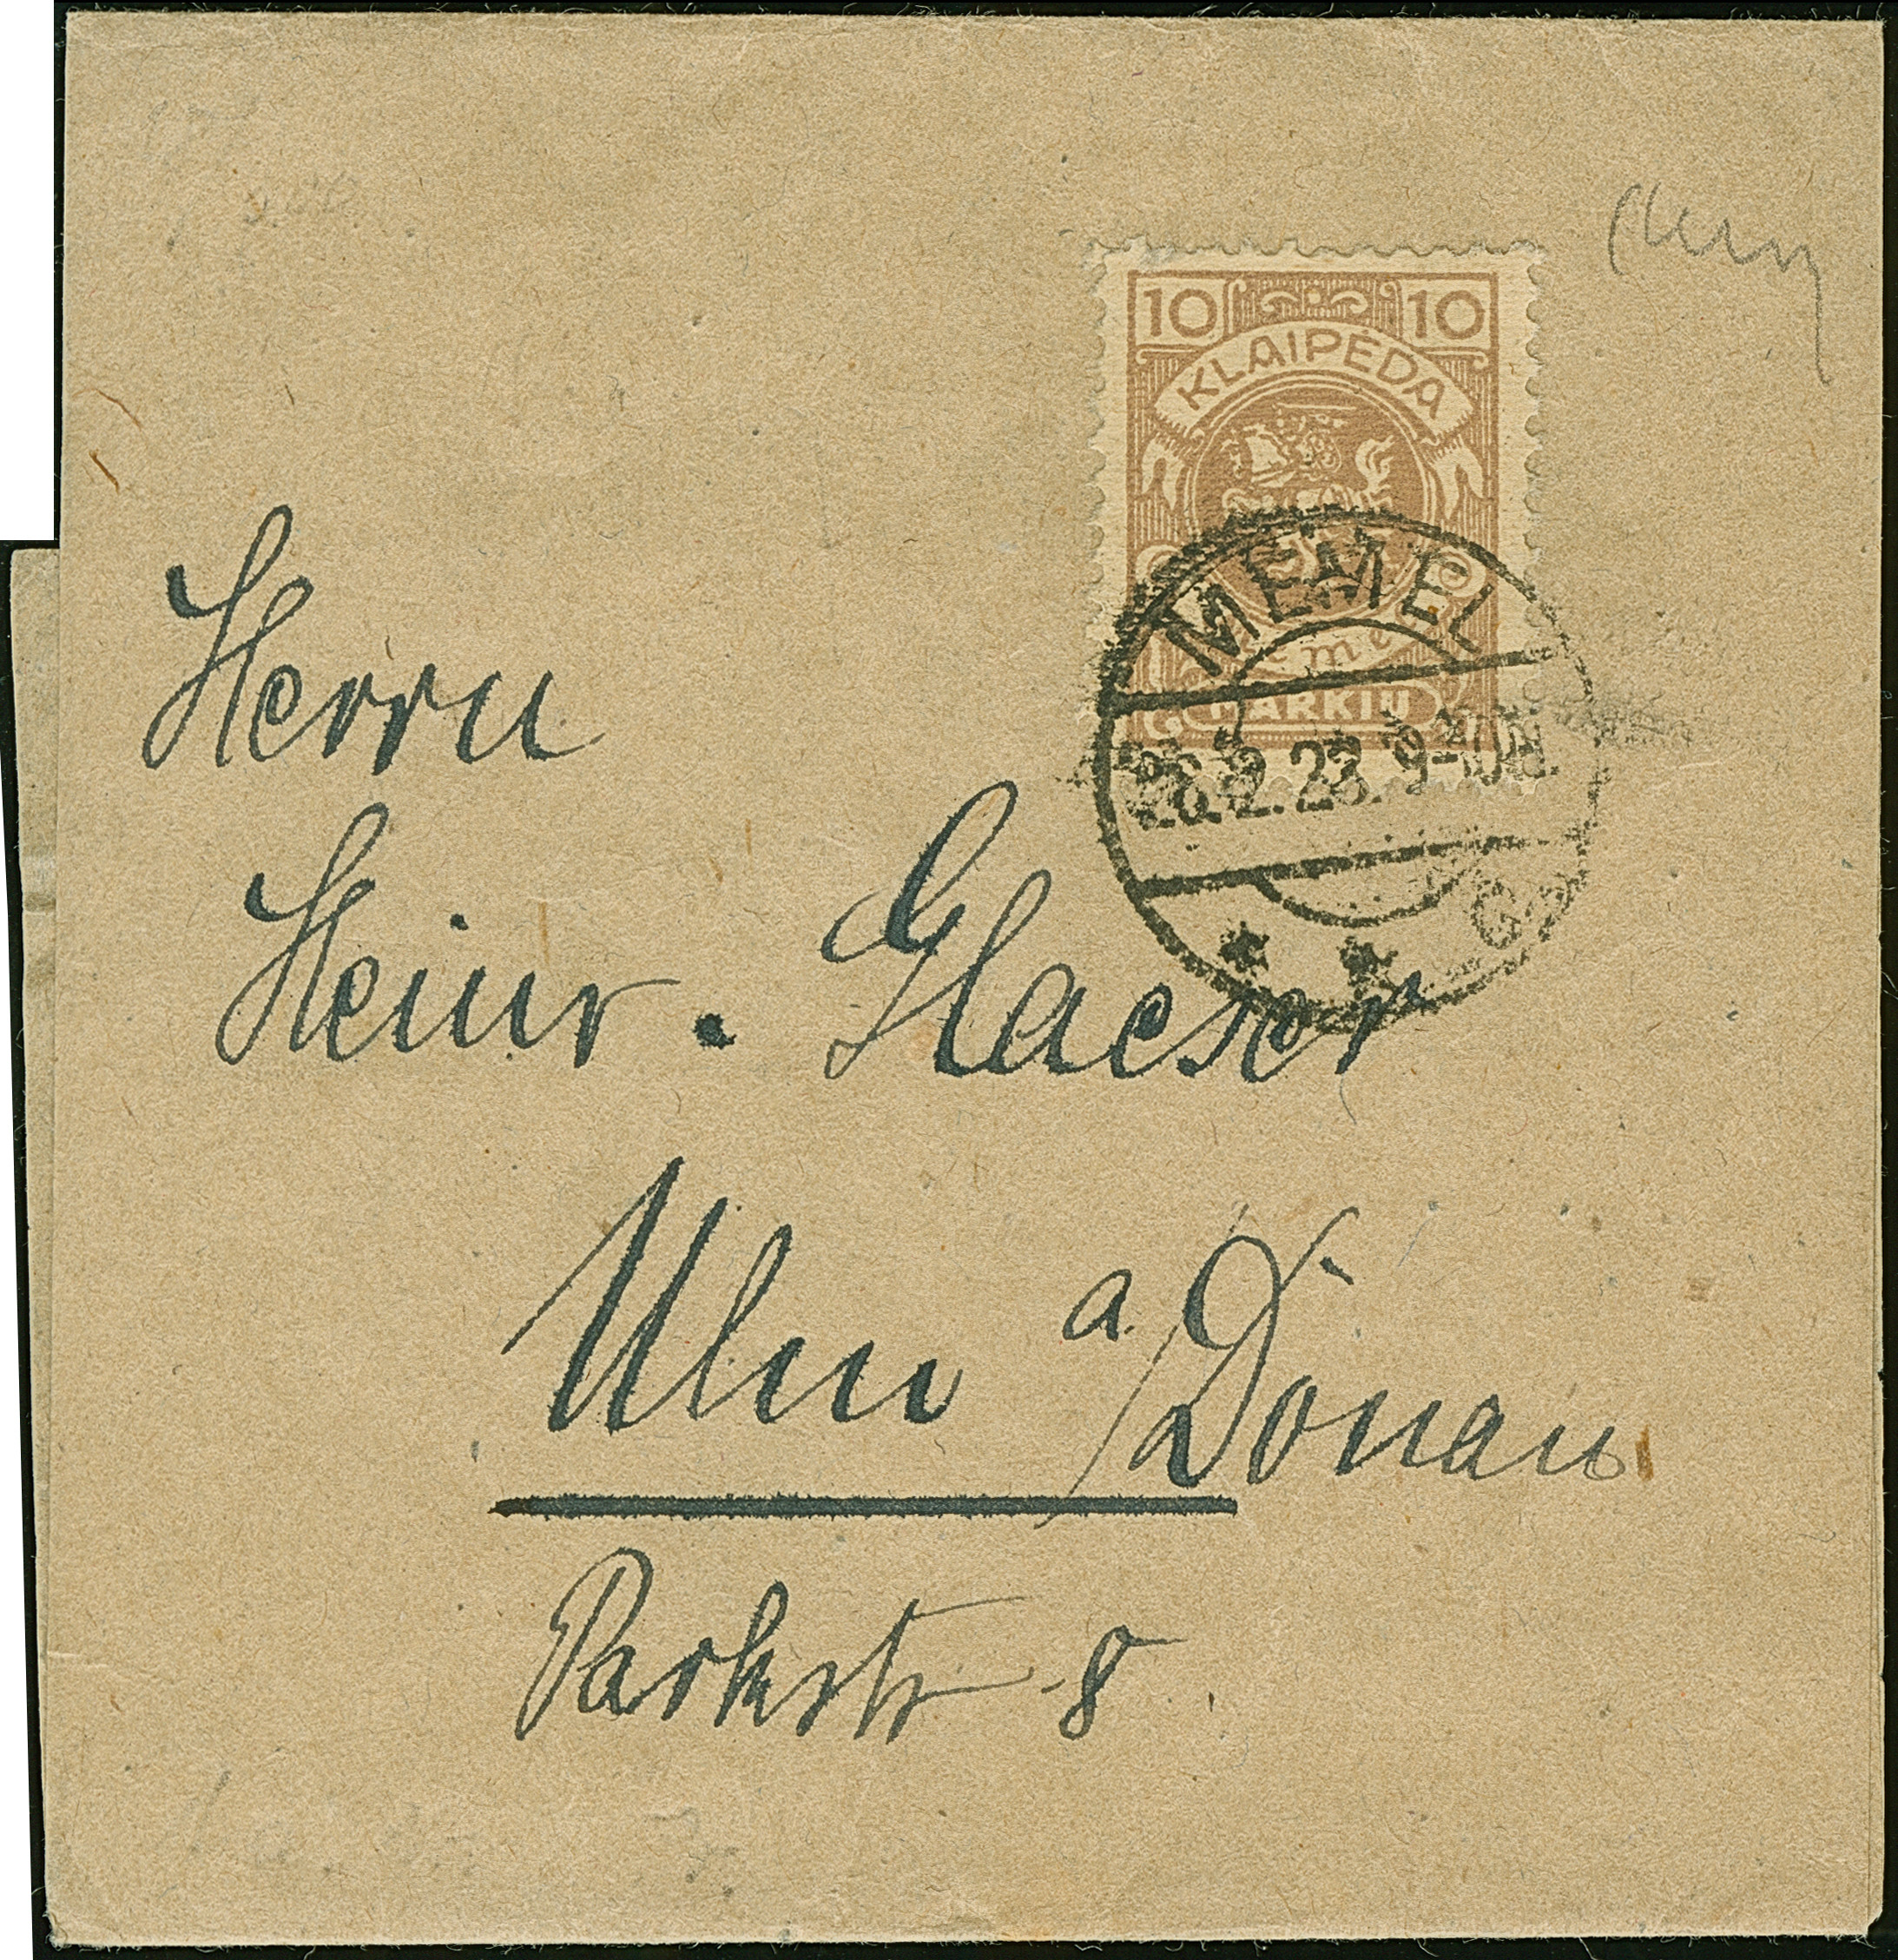 10 10
KLAIPĖDA
MARKIŲ
MEMEL
26.2.23. 9-10V.
Herrn
Heinr. Glaeser
Ulm a/Donau
Parkstr 8.